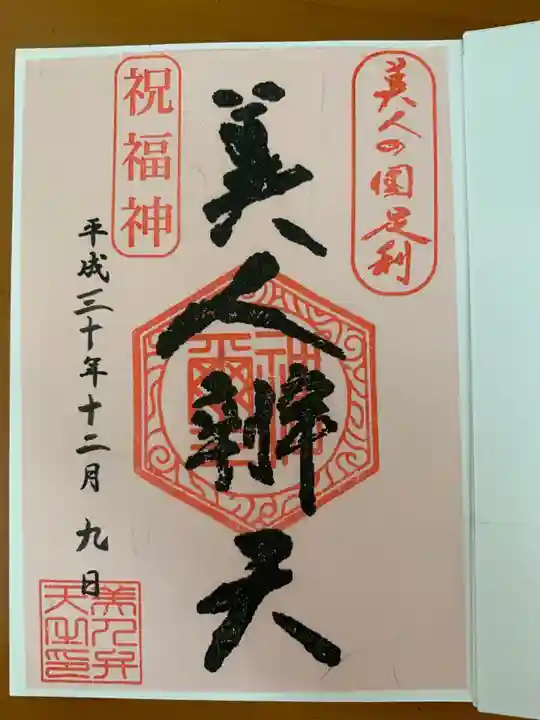 美人の国足利
美人辨天
祝福神
平成三十年十二月九日
美人弁
天之印